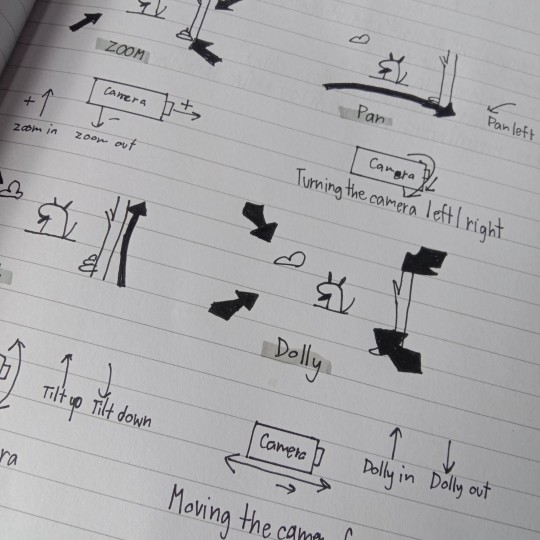 ZOOM
Camera
+
+
zoom in
-
zoom out
Pan
Pan left
Camera
Turning the camera left/right
Tilt up Tilt down
ra
Dolly
Camera
Dolly in Dolly out
Moving the came